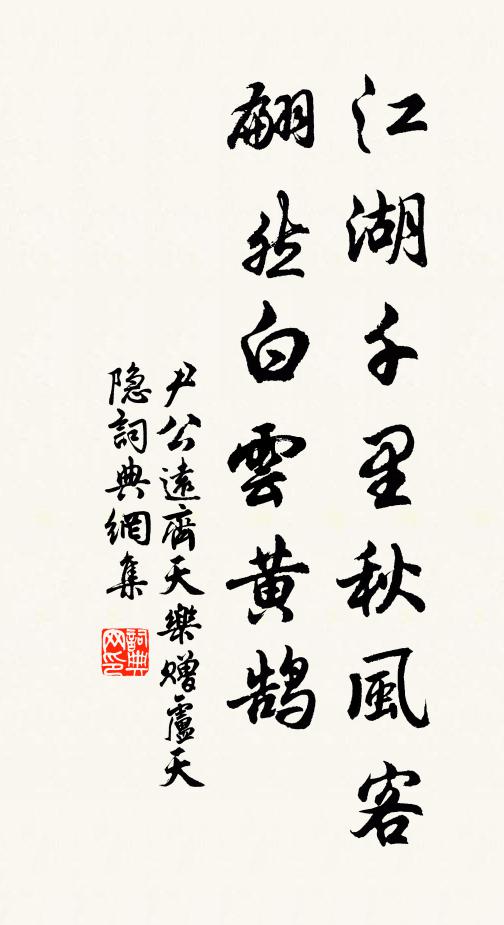 江湖千里秋風客
翩然白雲黄鹄
尹公遠齊天樂贈盧天
隐詞典網集
詞典网印